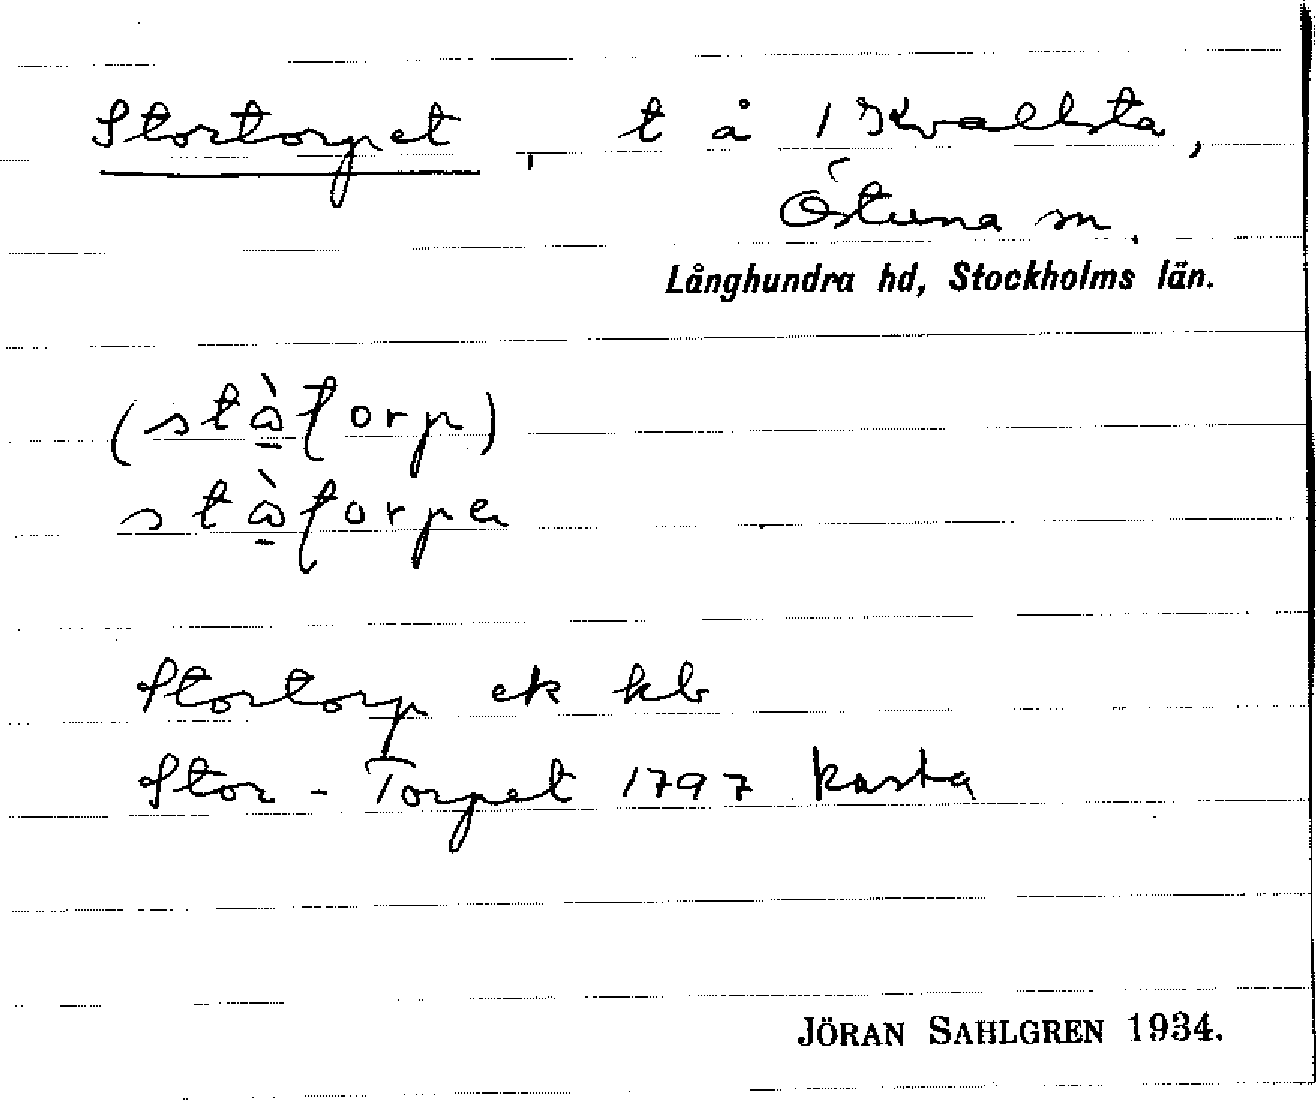 Stortorpet, t å 1 Kvallsta,
Östuna sn.
Långhundra hd, Stockholms län.
(stὼʈorp)
stὼʈorpa
Stortorp ek kb
Stor-Torpet 1797 karta
JÖRAN SAHLGREN 1934.